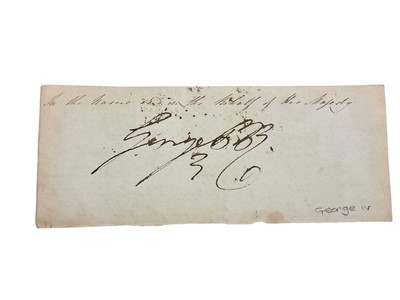 In the Name and on the Behalf of His Majesty
George P R
George IV